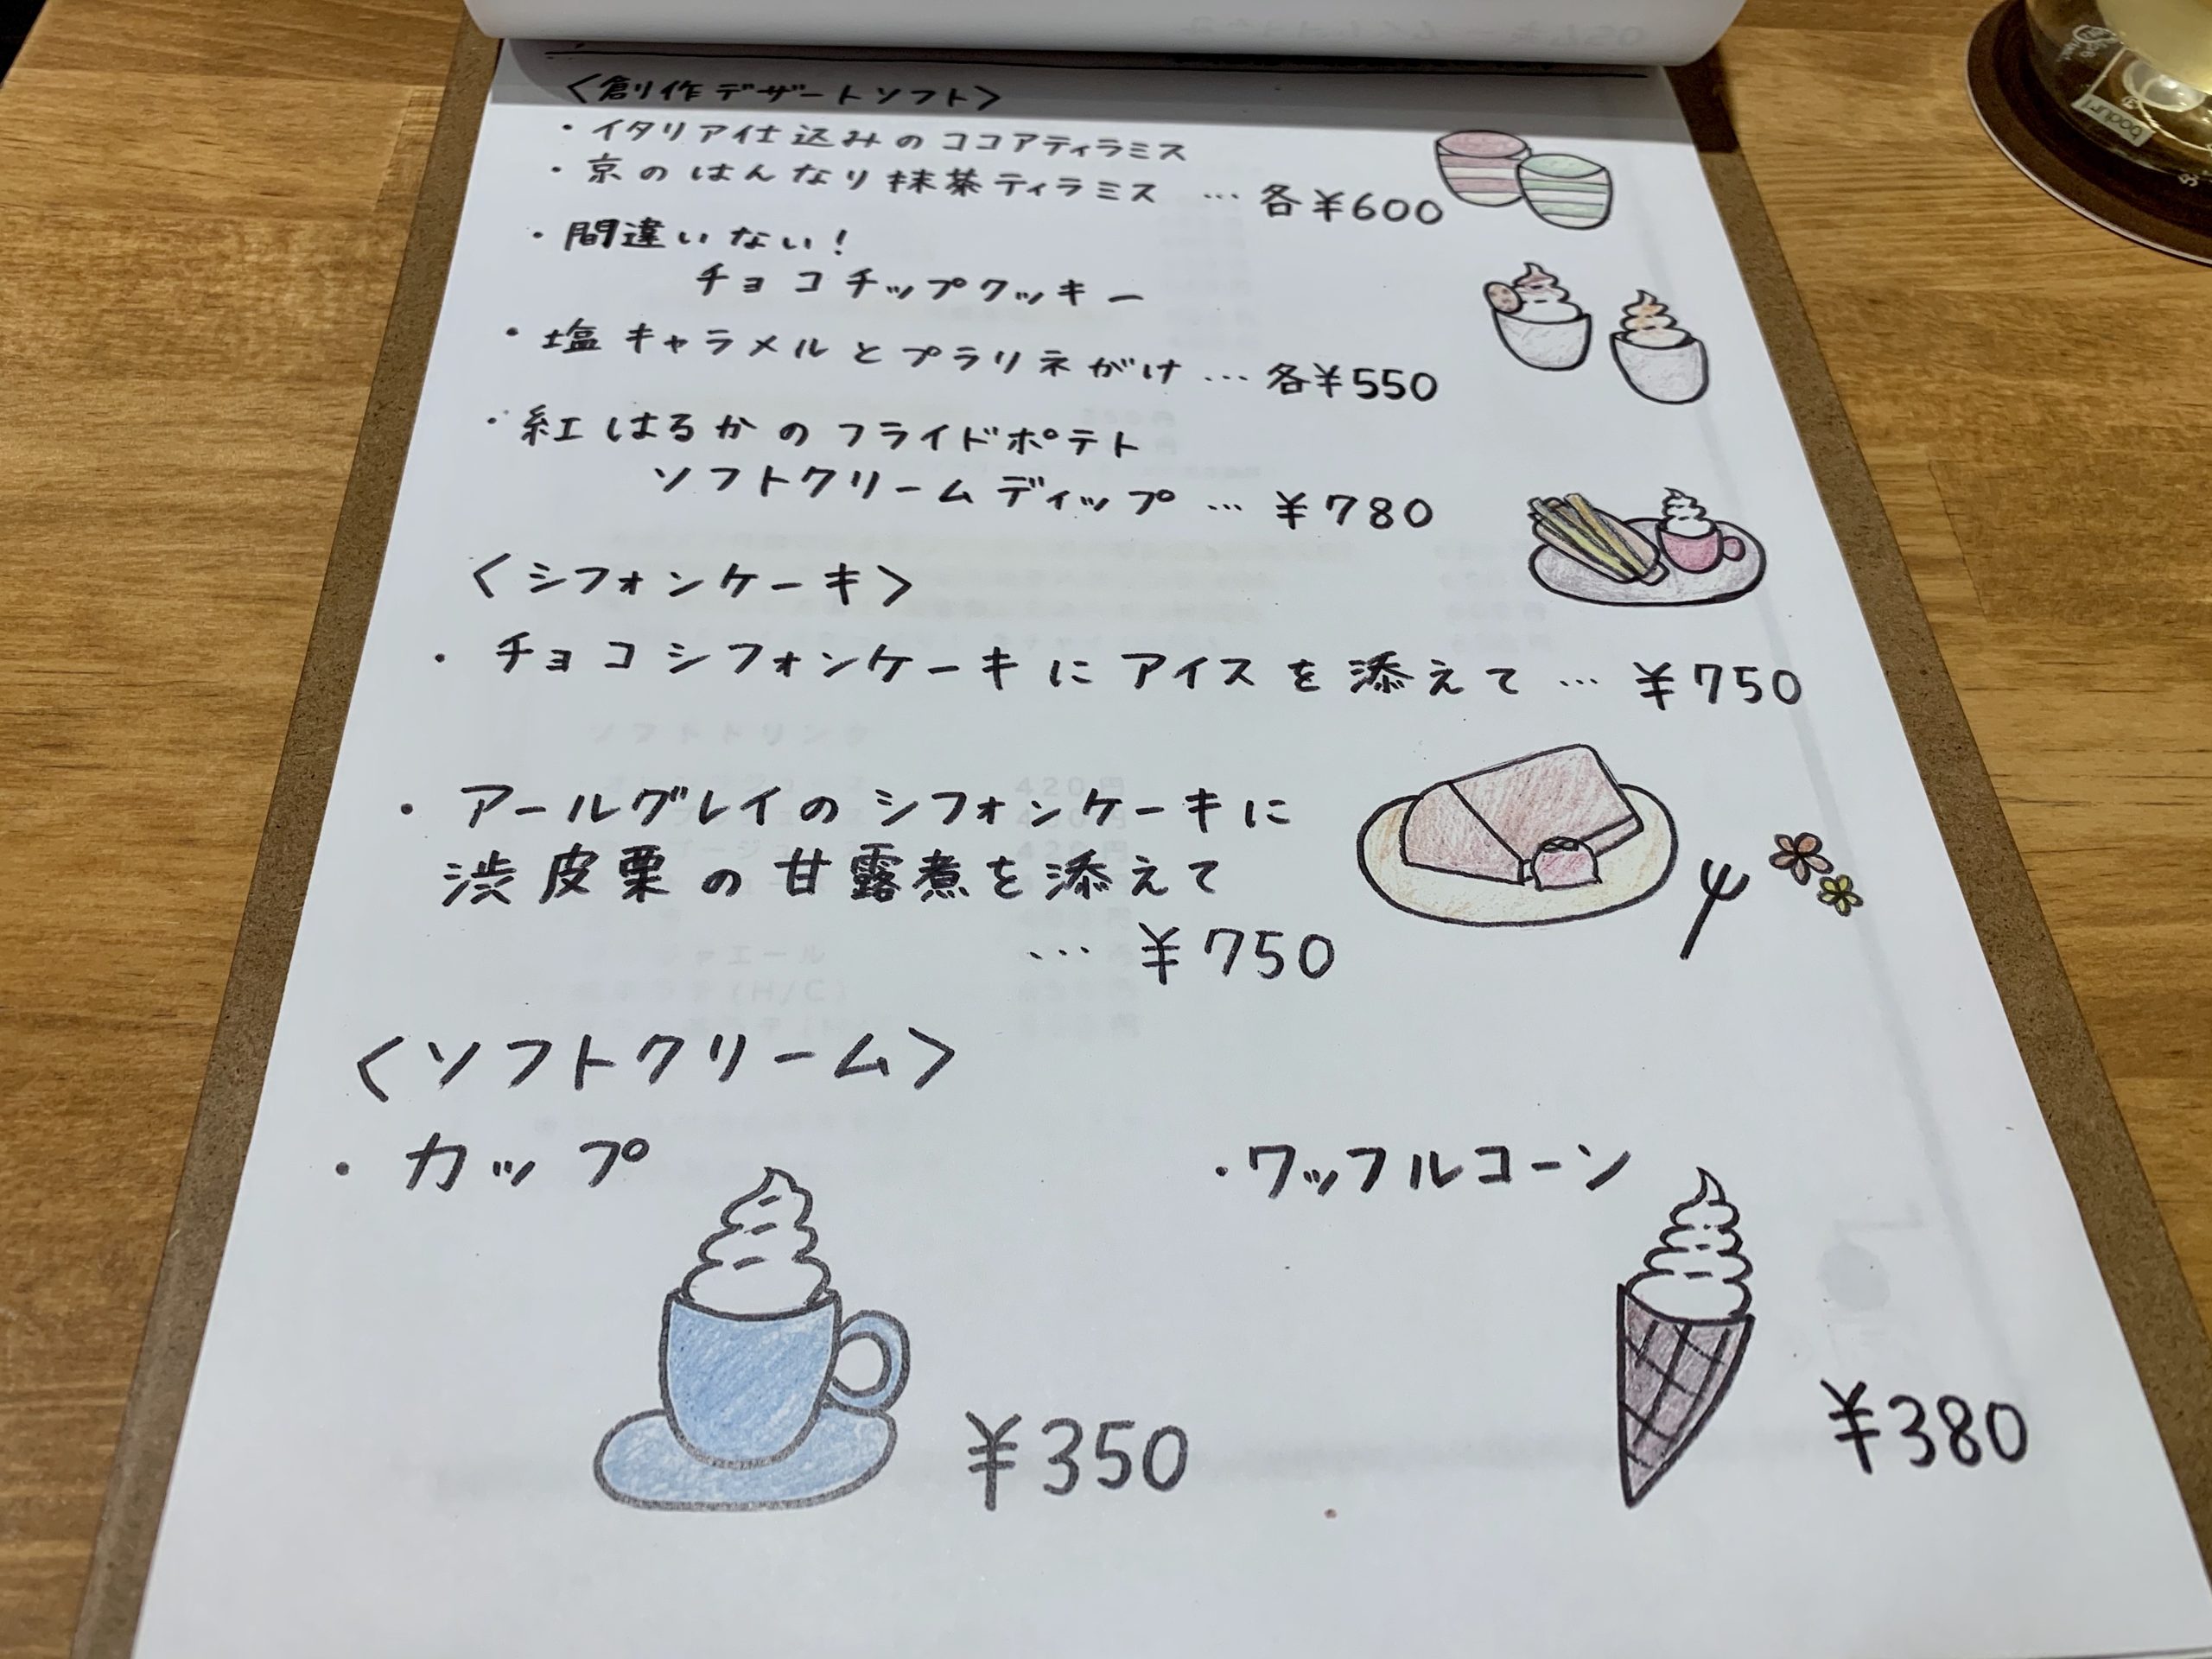 〈創作デザートソフト〉
・イタリア仕込みのココアティラミス
・京のはんなり抹茶ティラミス … 各¥600
・間違いない!
チョコチップクッキー
・塩キャラメルとプラリネがけ … 各¥550
・紅はるかのフライドポテト
ソフトクリームディップ … ¥780
〈シフォンケーキ〉
・チョコシフォンケーキにアイスを添えて … ¥750
・アールグレイのシフォンケーキに
渋皮栗の甘露煮を添えて
… ¥750
〈ソフトクリーム〉
・カップ ・ワッフルコーン
¥350 ¥380